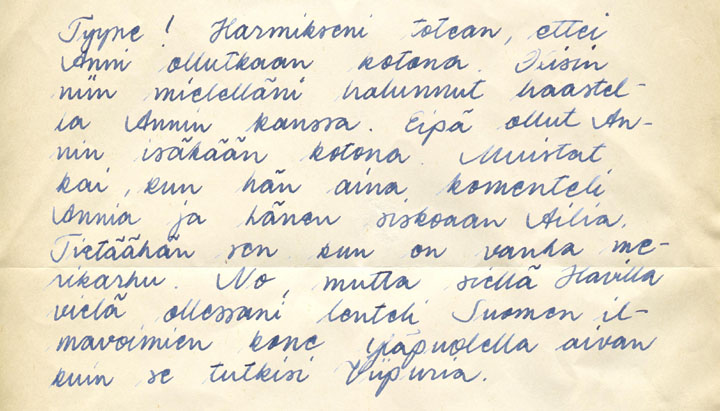 Tyyne! Harmikseni totean, ettei
Anni ollutkaan kotona. Olisin
niin mielelläni halunnut haastel-
la Annin kanssa. Eipä ollut An-
nin isäkään kotona. Muistat
kai, kun hän aina komenteli
Annia ja hänen siskoaan Ailia.
Tietäähän sen kun on vanha me-
rikarhu. No, mutta siellä Havilla
vielä ollessani lenteli Suomen il-
mavoimien kone yläpuolella aivan
kuin se tutkisi Viipuria.